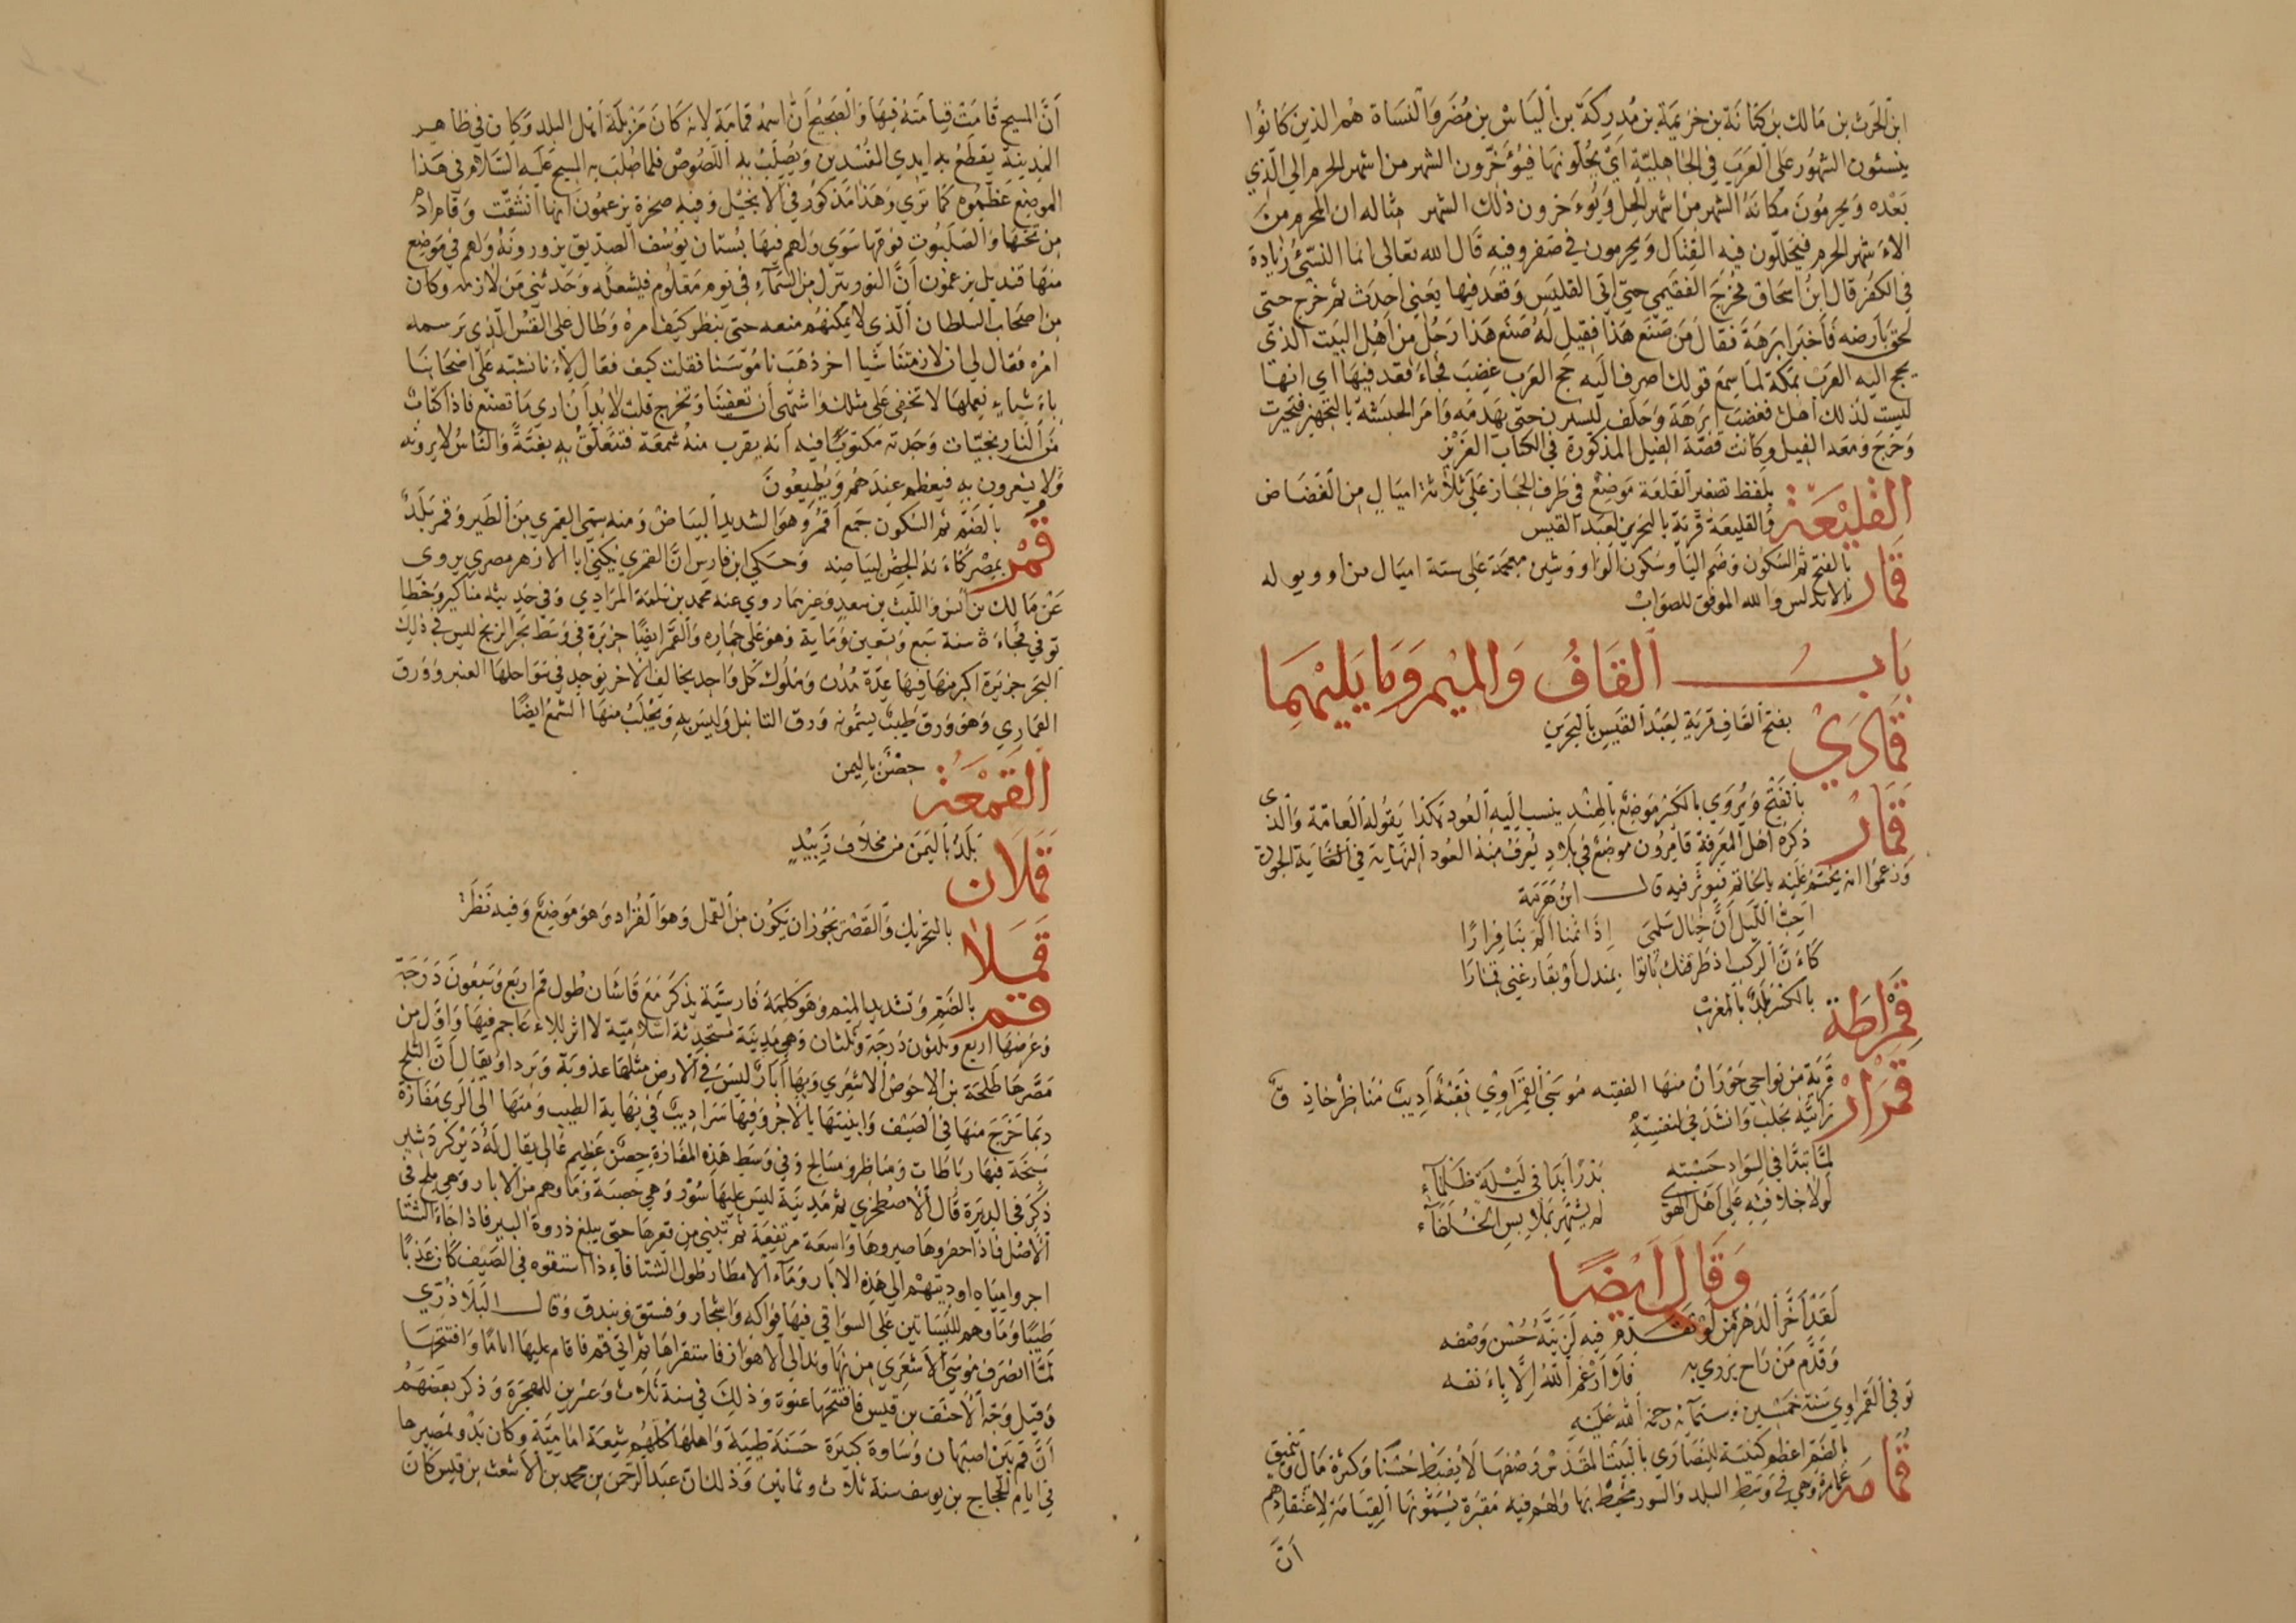 ابن الحرث بن مالك بن كنانة بن خزيمة بن مدركة بن الياس بن مضر والنساة هم الذين كانوا
ينسئون الشهور على العرب في الجاهلية اي يحلونها فيؤخرون الشهر من اشهر الحرم الي الذي
بعده ويحرمون مكانه الشهر من اشهر الحل ويؤخرون ذلك الشهر مثاله ان المحرم من
الاشهر الحرم فيحللون فيه القتال ويحرمون في صفر وفيه قال الله تعالى انما النسيئ زيادة
في الكفر قال ابن اسحاق فخرج الفقيمي حتى اتي القليس وقعد فيها يعني احدث ثم خرج حتى
لحق بارضه فاخبر ابرهة فقال من صنع هذا فقيل له صنع هذا رجل من اهل البيت الذي
يحج اليه العرب بمكة لما سمع قولك اصرف اليه حج العرب غضب فجاء فقعد فيها اي انها
ليست لذلك اهل فغضب ابرهة وحلف ليسيرن حتى يهدمه وامر الحبشة بالتجهيز فتجهزت
وخرج ومعه الفيل وكانت قصة الفيل المذكورة في الكتاب العزيز
القليعة بلفظ تصغير القلعة موضع في طرف الحجاز على ثلاثة اميال من الغضاض
والقليعة قرية بالبحرين لعبد القيس
قمار بالفتح ثم السكون وضم اليا وسكون الواو وشين معجمة على ستة اميال من اوريوله
بالاندلس والله الموفق للصواب
باب القاف والميم وما يليهما
قمادي بفتح القاف قرية لعبد القيس بالبحرين
قمار بالفتح ويروي بالكسر موضع بالهند ينسب اليه العود هكذا يقوله العامة والذي
ذكره اهل المعرفة قامرون موضع في بلاد يعرف منه العود النهاية في الغاية الجودة
وزعموا انه يختم عليه بالخاتم فيوثر فيه قال ابن هرمة
احب الليل ان خيال سلمي اذا نمنا الم بنا فزارا
كان الركب اذ طرقتك باتوا بمندل او بقارعتي قمارا
قمراطة بالكسر بلد بالمغرب
قمرار قرية من نواحي حوران منها الفقيه موسى القمراوي فقيه اديب مناظر حاذق
رايته بحلب وانشدني لنفسه
لما تبدا في السواد حسبته بدرا بدا في ليلة ظلماء
لولا خلافته على اهل الهوى لم يشتهر بملابس الخلفاء
وقال ايضا
لقد اخر الدهر من لو تقدم فيه لزينه حسن وصفه
وقدم من راح يزوي به فلا ارغم الله الا بانفه
توفي القمراوي سنة خمسين وستمائة رحمة الله عليه
قمامة بالضم اعظم كنيسة للنصاري بالبيت المقدس وصفها لا يضبط حسنا وكثرة مال وتنميق
عمارة وهي في وسط البلد والسور محيط بها ولهم فيه مقبرة يسمونها القيامة لاعتقادهم
ان
ان المسيح قامت قيامته فيها والصحيح ان اسمه قمامة لانه كان مزبلة اهل البلد وكان في ظاهر
المدينة يقطع به ايدي المفسدين ويصلب به اللصوص فلما صلب به المسيح عليه السلام في هذا
الموضع عظموه كما تري وهذا مذكور في الانجيل وفيه صخرة يزعمون انها انشقت وقام ادم
من تحتها والصلبوت فوقها سوي ولهم فيها بستان يوسف الصديق يزورونه ولهم في موضع
منها قنديل يزعمون ان النور ينزل من السماء في يوم معلوم فيشعله وحدثني من لازمه وكان
من اصحاب السلطان الذي لا يمكنهم منعه حتى ينظر كيف امره وطال علي القس الذي برسمه
امره فقال لي ان لازمتنا شيا اخر ذهب ناموسنا فقلت كيف فقال لاءنا نشبه على اصحابنا
باشياء نعملها لا تخفى علي مثلك واشتهي ان تعفينا وتخرج قلت لا بد ان اري ما تصنع فاذا كتاب
من النارنجيات وجدته مكتوبا فيه انه يقرب منه شمعة فتتعلق به بغتة والناس لا يرونه
ولا يشعرون به فيعظم عندهم ويطيعون
قمر بالضم ثم السكون جمع اقمر وهو الشديد البياض ومنه سمي القمري من الطير وقمر بلد
بمصر كانه الجص لبياضه وحكي ابن فارس ان القمري يكني ابا الازهر مصري يروى
عن مالك بن انس والليث بن سعد وغيرهما روي عنه محمد بن سلمة المرادي وفي حديثه مناكير وخطا
توفي فجاءة سنة سبع وتسعين ومايه وهو على حماره والقمر ايضا جزيرة في وسط بحر الزنج ليس في ذلك
البحر جزيرة اكبر منها فيها عدة مدن وملوك كل واحد يخالف الاخر يوجد في سواحلها العنبر وورق
القماري وهو ورق طيب يسمونه ورق التانبل وليس به ويجلب منها الشمع ايضا
القمعة حصن باليمن
قملان بلد باليمن من مخلاف زبيد
قملا بالتحريك والقصر يجوز ان يكون من القمل وهو القراد وهو موضع وفيه نظر
قم بالضم وتشديد الميم وهو كلمة فارسية يذكر مع قاشان طول قم اربع وسبعون درجة
وعرضها اربع وثلثون درجة وثلثان وهي مدينة مستحدثة اسلامية لا اثر للاعاجم فيها واول من
مصرها طلحة بن الاحوص الاشعري وبها ابار ليس في الارض مثلها عذوبة وبردا ويقال ان الثلج
ربما خرج منها في الصيف وابنيتها بالاجر وفيها سراديب في نهاية الطيب ومنها الى الري مفازة
سبخة فيها رباطات ومناظر ومسالح وفي وسط هذه المفازة حصن عظيم عالي يقال له دير كردشير
ذكر في الديرة قال الاصطخري ثم مدينة ليس عليها سور وهي خصبة وماوهم من الابار وهي ملح في
الاصل فاذا حفروها صيروها واسعة مرتفعة ثم تبنى من قعرها حتى يبلغ ذروة البير فاذا جاء الشتا
اجروا مياه اوديتهم الى هذه الابار وماء الامطار طول الشتا فاءذا استقوه في الصيف كان عذبا
طيبا وماوهم للبساتين على السواقي فيها فواكه واشجار وفستق وبندق وقال البلاذري
لما انصرف موسى الاشعري من نهاوند الي الاهواز فاستقراها ثم اتى قم فاقام عليها اياما وافتتحها
وقيل وجه الاحنف بن قيس فافتتحها عنوة وذلك في سنة ثلاث وعشرين للهجرة وذكر بعضهم
ان قم بين اصبهان وساوة كبيرة حسنة طيبة واهلها كلهم شيعة امامية وكان بدؤ تمصيرها
في ايام الحجاج بن يوسف سنة ثلاث وثمانين وذلك ان عبد الرحمن بن محمد بن الاشعث بن قيس كان